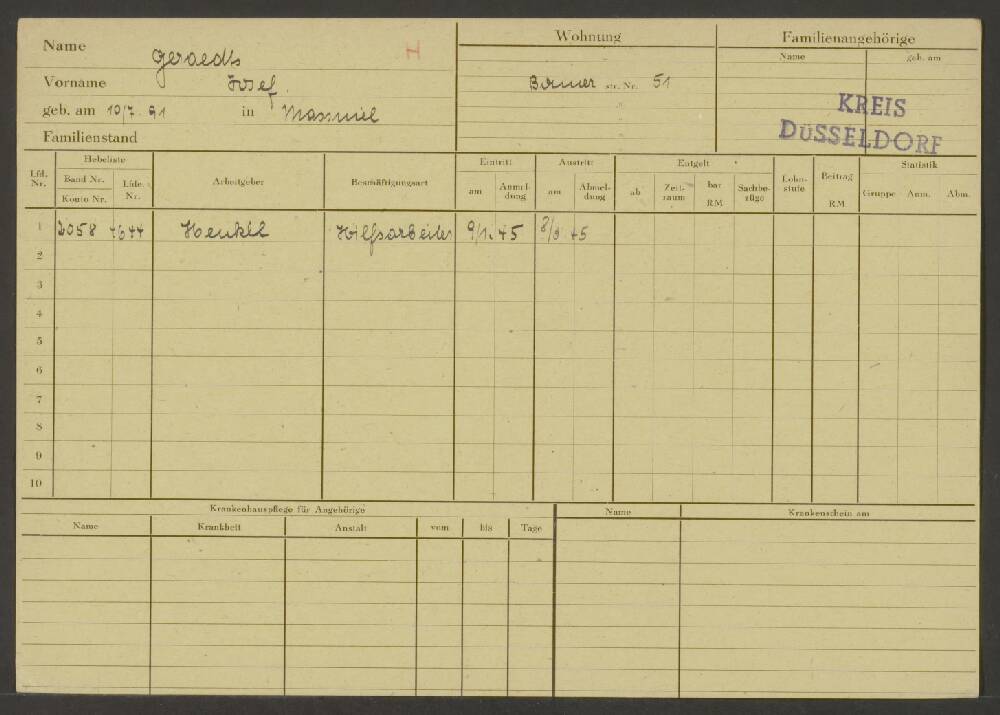 Name Geraedts H
Vorname Josef
geb. am 10/7. 91 in
Familienstand
Wohnung
str. Nr. 51
Familienangehörige
Name geb. am
KREIS
DÜSSELDORF
Lfd. Nr.
Hebeliste
Band Nr.
Konto Nr.
Lfde. Nr.
Arbeitgeber
Beschäftigungsart
Eintritt
am Anmeldung
Austritt
am Abmeldung
Entgelt
ab Zeitraum bar RM Sachbezüge
Lohnstufe
Beitrag RM
Statistik
Gruppe Anm. Abm.
1 2058 4644 Henkel Hilfsarbeiter 9/1. 45 45
2
3
4
5
6
7
8
9
10
Krankenhauspflege für Angehörige
Name Krankheit Anstalt vom bis Tage
Name Krankenschein am